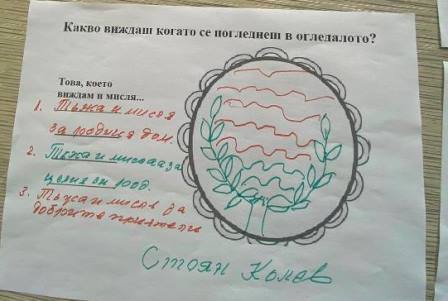 Какво виждаш когато се погледнеш в огледалото?
Това, което
виждам и мисля...
1. Тъжа и мисля
за родния дом.
2. Тъжа и мисля за
целия си род.
3. Тъжа и мисля за
добрите приятели
Стоян Колев